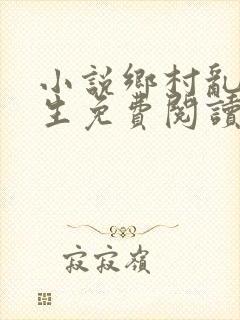 小說鄉村亂
生免費閱讀
寂寂嶺